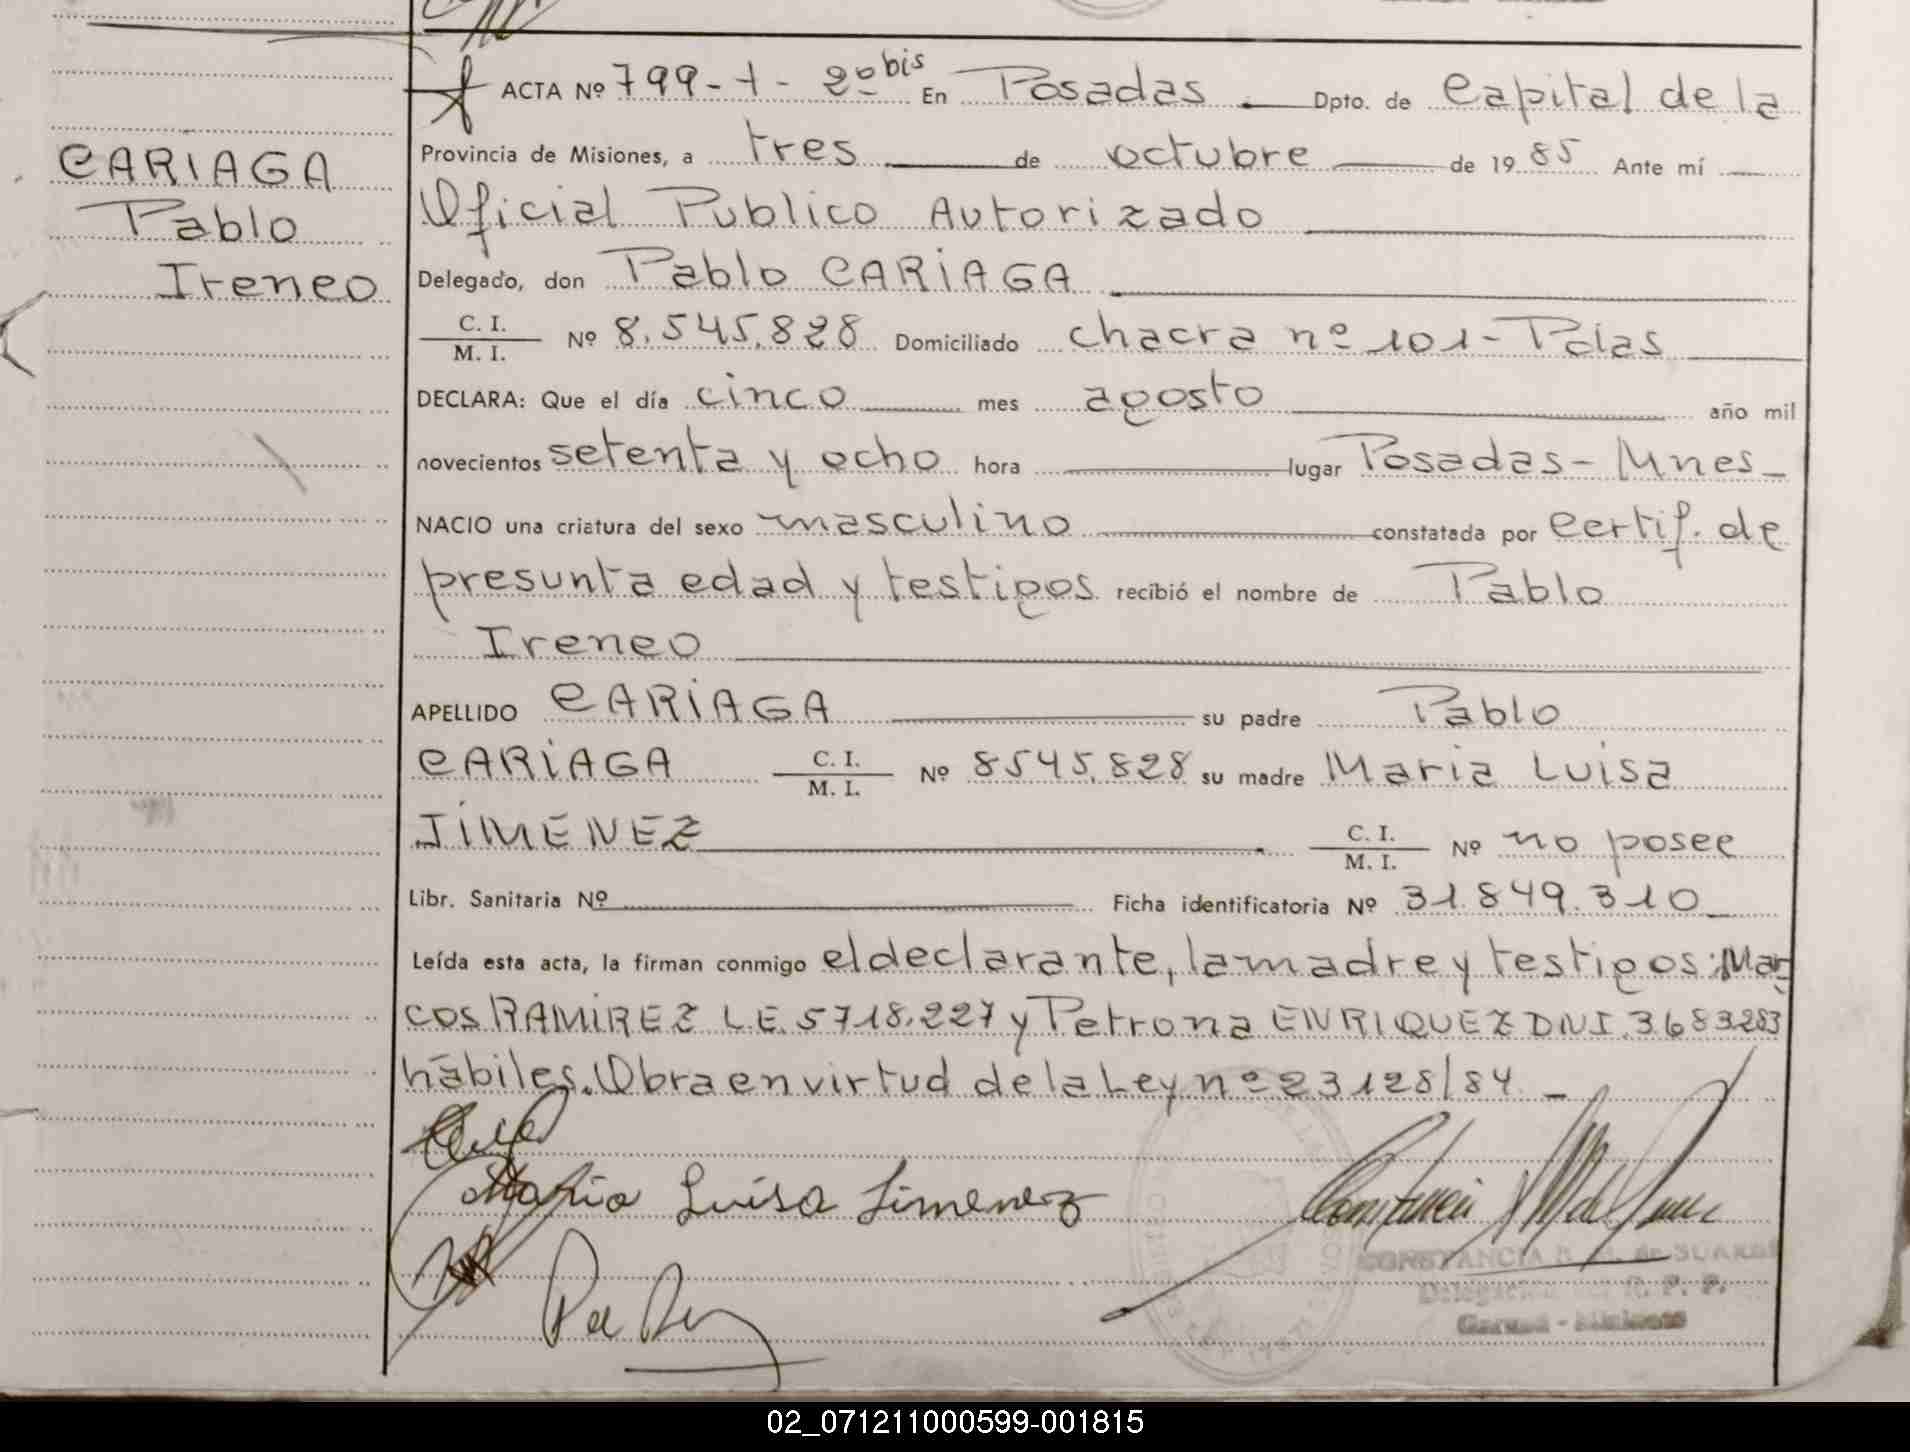 ACTA Nº 799-1-20 bis En Posadas Dpto. de Capital de la
CARIAGA
Pablo
Ireneo
Provincia de Misiones, a tres de octubre de 1985 Ante mí
Oficial Publico Autorizado
Delegado, don Pablo CARIAGA
C. I.
M. I. Nº 8.545.828 Domiciliado chacra nº 101-Pdas
DECLARA: Que el día cinco mes agosto año mil
novecientos setenta y ocho hora lugar Posadas- Mnes
NACIO una criatura del sexo masculino constatada por Certif. de
presunta edad y testigos recibió el nombre de Pablo
Ireneo
APELLIDO CARIAGA su padre Pablo
CARIAGA C. I.
M. I. Nº 8545.828 su madre Maria Luisa
JIMENEZ C. I.
M. I. Nº no posee
Libr. Sanitaria Nº Ficha identificatoria Nº 31.849.310
Leída esta acta, la firman conmigo el declarante, la madre y testigos: Mar
cos RAMIREZ L.E. 5718.227 y Petrona ENRIQUEZ DNI. 3683283
hábiles. Obra en virtud de la Ley nº 23128/84
Maria Luisa Jimenez
CONSTANCIA de SUAREZ
R. P. P.
02_071211000599-001815